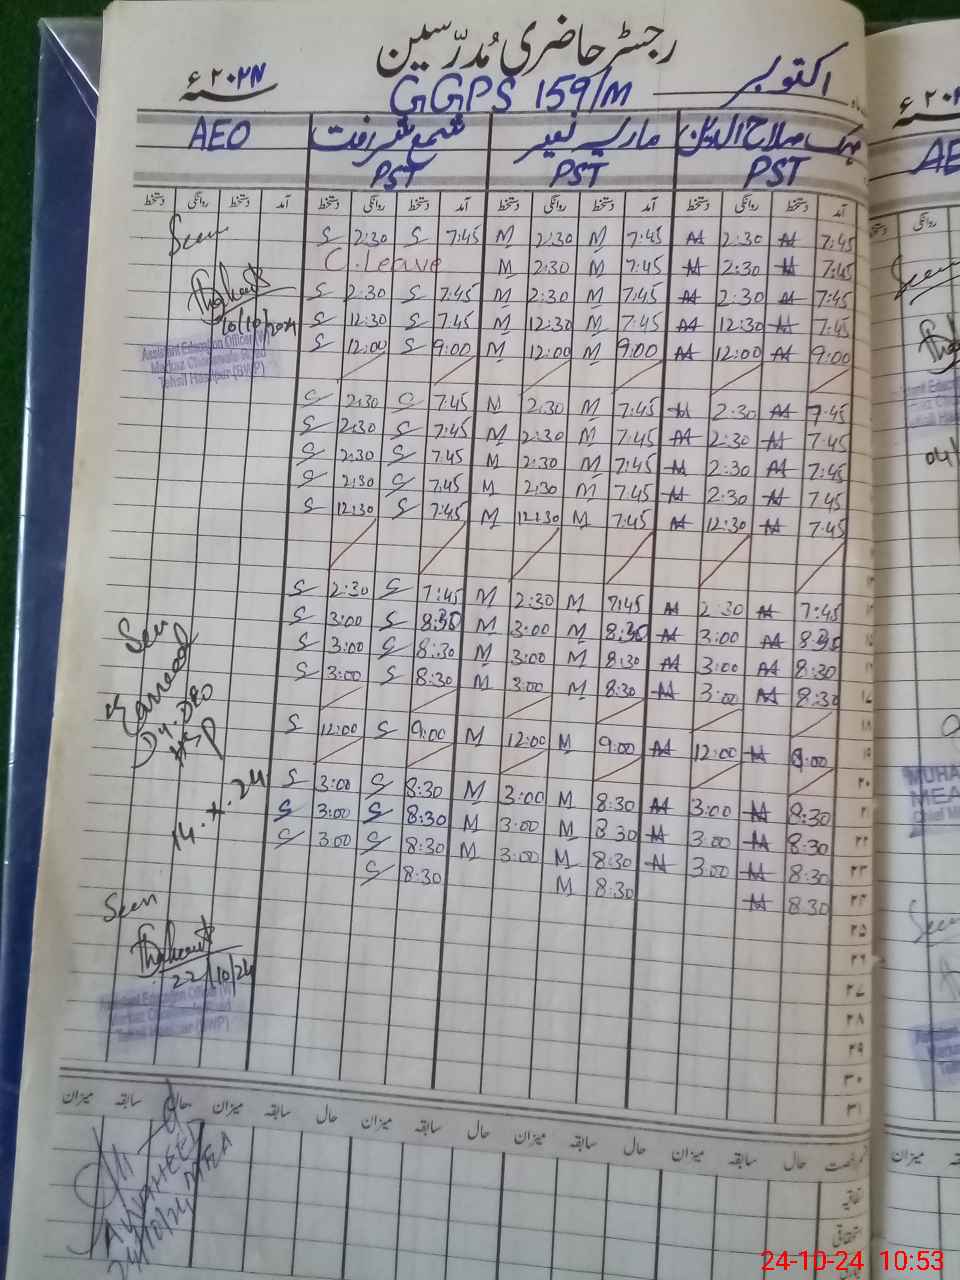 رجسٹر حاضری مُدرّسین
اکتوبر ۲۰۲۴ ء
GGPS 159/M
صلاح الدین ماریہ نصیر شمع شرافت AEO
PST PST PST
آمد دستخط روانگی دستخط آمد دستخط روانگی دستخط آمد دستخط روانگی دستخط آمد دستخط روانگی دستخط
Seen S 2:30 S 7:45 M 2:30 M 7:45 2:30 7:45
C. Leave M 2:30 M 7:45 2:30 7:45
S 2:30 S 7:45 M 2:30 M 7:45 2:30 7:45
10/10/2024 S 12:30 S 7:45 M 12:30 M 7:45 12:30 7:45
S 12:00 S 9:00 M 12:00 M 9:00 12:00 9:00
Assistant Education Officer
Tehsil Hasilpur (BWP)
S 2:30 S 7:45 M 2:30 M 7:45 2:30 7:45
S 2:30 S 7:45 M 2:30 M 7:45 2:30 7:45
S 2:30 S 7:45 M 2:30 M 7:45 2:30 7:45
S 2:30 S 7:45 M 2:30 M 7:45 2:30 7:45
S 12:30 S 7:45 M 12:30 M 7:45 12:30 7:45
S 2:30 S 7:45 M 2:30 M 7:45 2:30 7:45
Seen S 3:00 S 8:30 M 3:00 M 8:30 3:00 8:30
S 3:00 S 8:30 M 3:00 M 8:30 3:00 8:30
S 3:00 S 8:30 M 3:00 M 8:30 3:00 8:30 ۱۷
۱۸
Dy. DEO
HSP
S 12:00 S 9:00 M 12:00 M 9:00 12:00 9:00 ۱۹
۲۰
14.X.24 S 3:00 S 8:30 M 3:00 M 8:30 3:00 8:30 ۲۱
S 3:00 S 8:30 M 3:00 M 8:30 3:00 8:30 ۲۲
S 3:00 S 8:30 M 3:00 M 8:30 3:00 8:30 ۲۳
S 8:30 M 8:30 8:30 ۲۴
Seen ۲۵
۲۶
22/10/24 ۲۷
Assistant Education Officer
Tehsil Hasilpur (BWP)
۲۸
۲۹
۳۰
۳۱
حال سابقہ میزان حال سابقہ میزان حال سابقہ میزان حال سابقہ میزان
اتفاقیہ
استحقاقی
24/10/24 MEA
۲۰۲ ء
AE
روانگی
Seen
04/
MUHA
MEA
Chief M
Seen
میزان
24-10-24 10:53